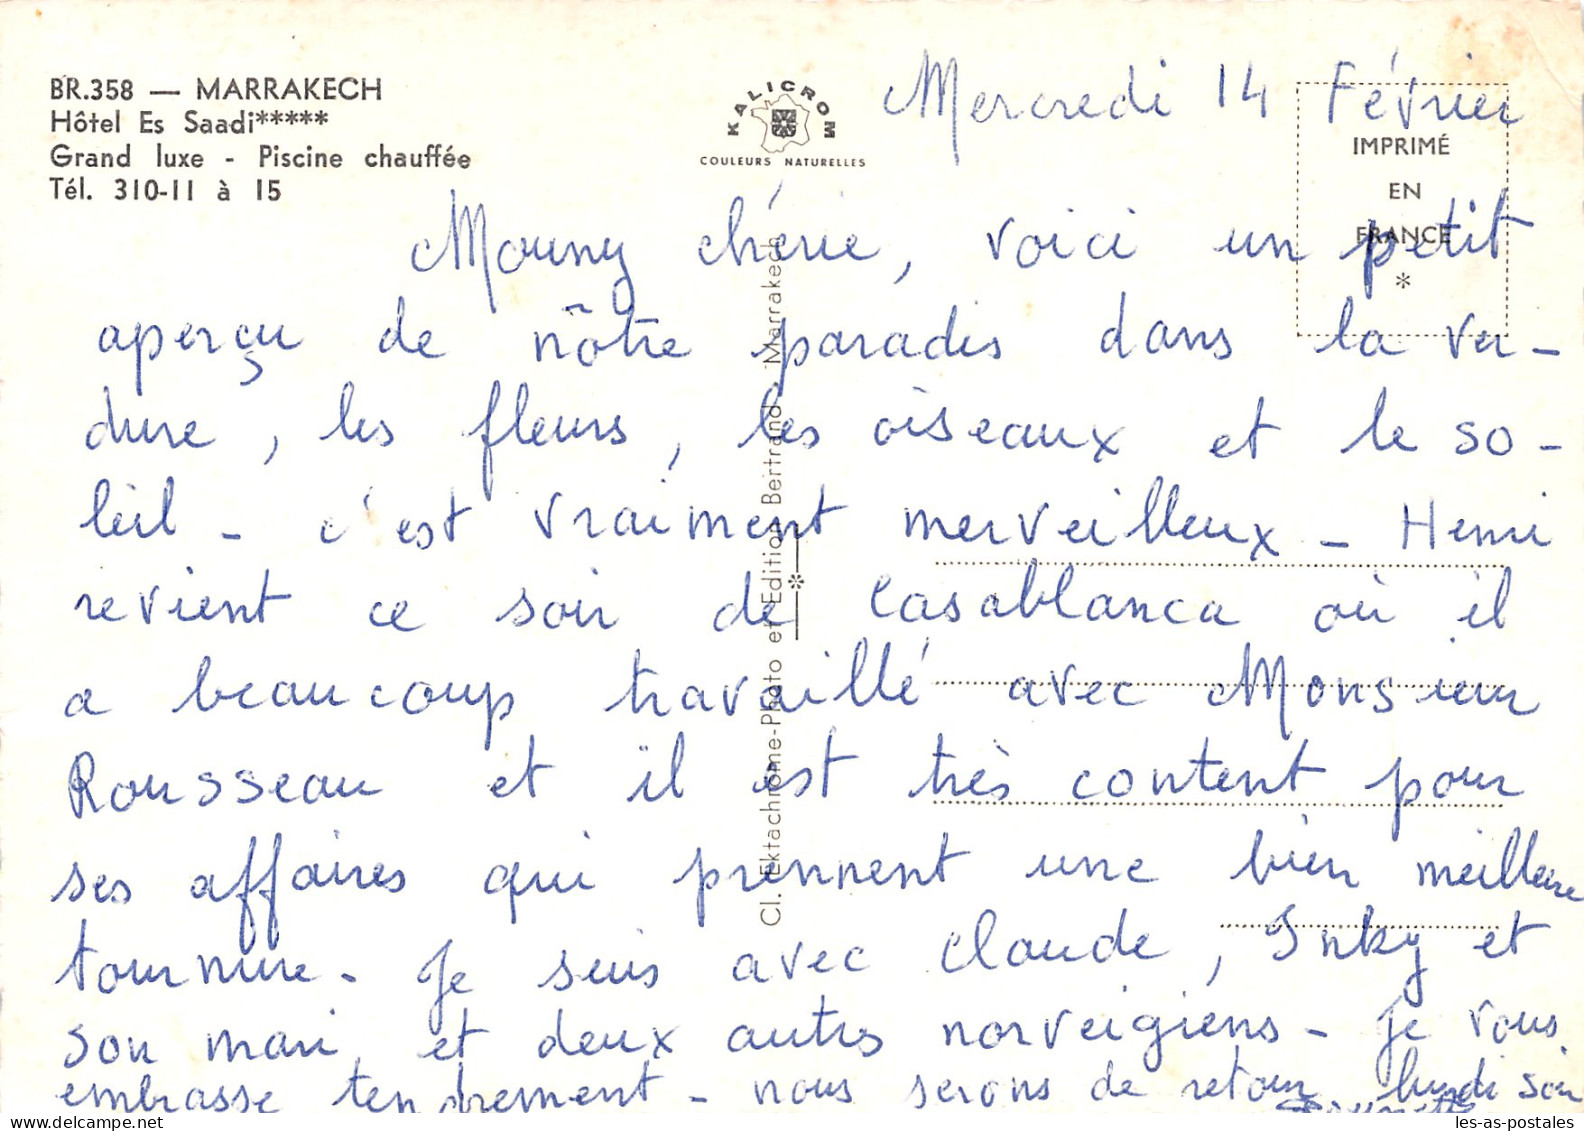 BR.358 — MARRAKECH
Hôtel Es Saadi*****
Grand luxe - Piscine chauffée
Tél. 310-11 à 15
KALICROM
COULEURS NATURELLES
IMPRIMÉ
EN
FRANCE
*
Cl. Ektachrome-Photo et Edition Bertrand - Marrakech
Mercredi 14 Février
Mouny chérie, voici un petit
aperçu de nôtre paradis dans la ver-
dure, les fleurs, les oiseaux et le so-
leil - c'est vraiment merveilleux - Henri
revient ce soir de Casablanca où il
a beaucoup travaillé avec Monsieur
Rousseau et il est très content pour
ses affaires qui prennent une bien meilleure
tournure - Je suis avec Claude, Inky et
son mari et deux autres norveigiens - Je vous
embrasse tendrement - nous serons de retour lundi soir
delcampe.net
les-as-postales